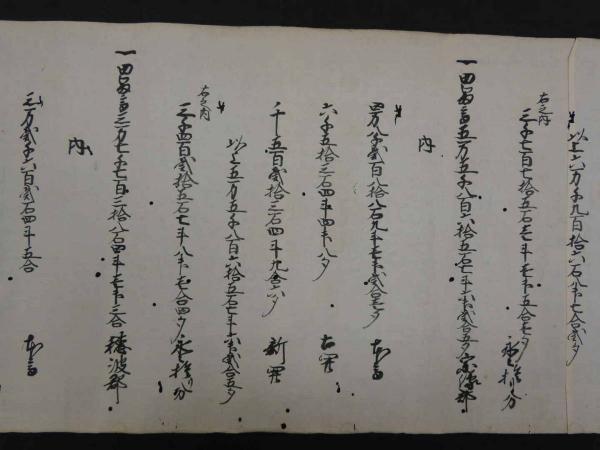 以上六万千九百拾六石八斗七合弐夕
右之内
三千七百七拾五石七斗壱升五合七夕
永捨り分
一田畠高五万五千八百六拾五石七斗六升弐合五夕
内
四万八千弐百拾八石九斗七升弐合七夕 本高
六千五拾三石四斗四升八夕 古開
千五百弐拾三石四斗九合六夕 新開
以上五万五千八百六拾五石七斗六升弐合五夕
右之内
三千四百弐拾五石七斗八升七合四夕 永捨り分
一田畠高三万七千七百三拾八石四斗壱升三合 穂波郡
内
三万弐千六百弐石四斗五合 本高